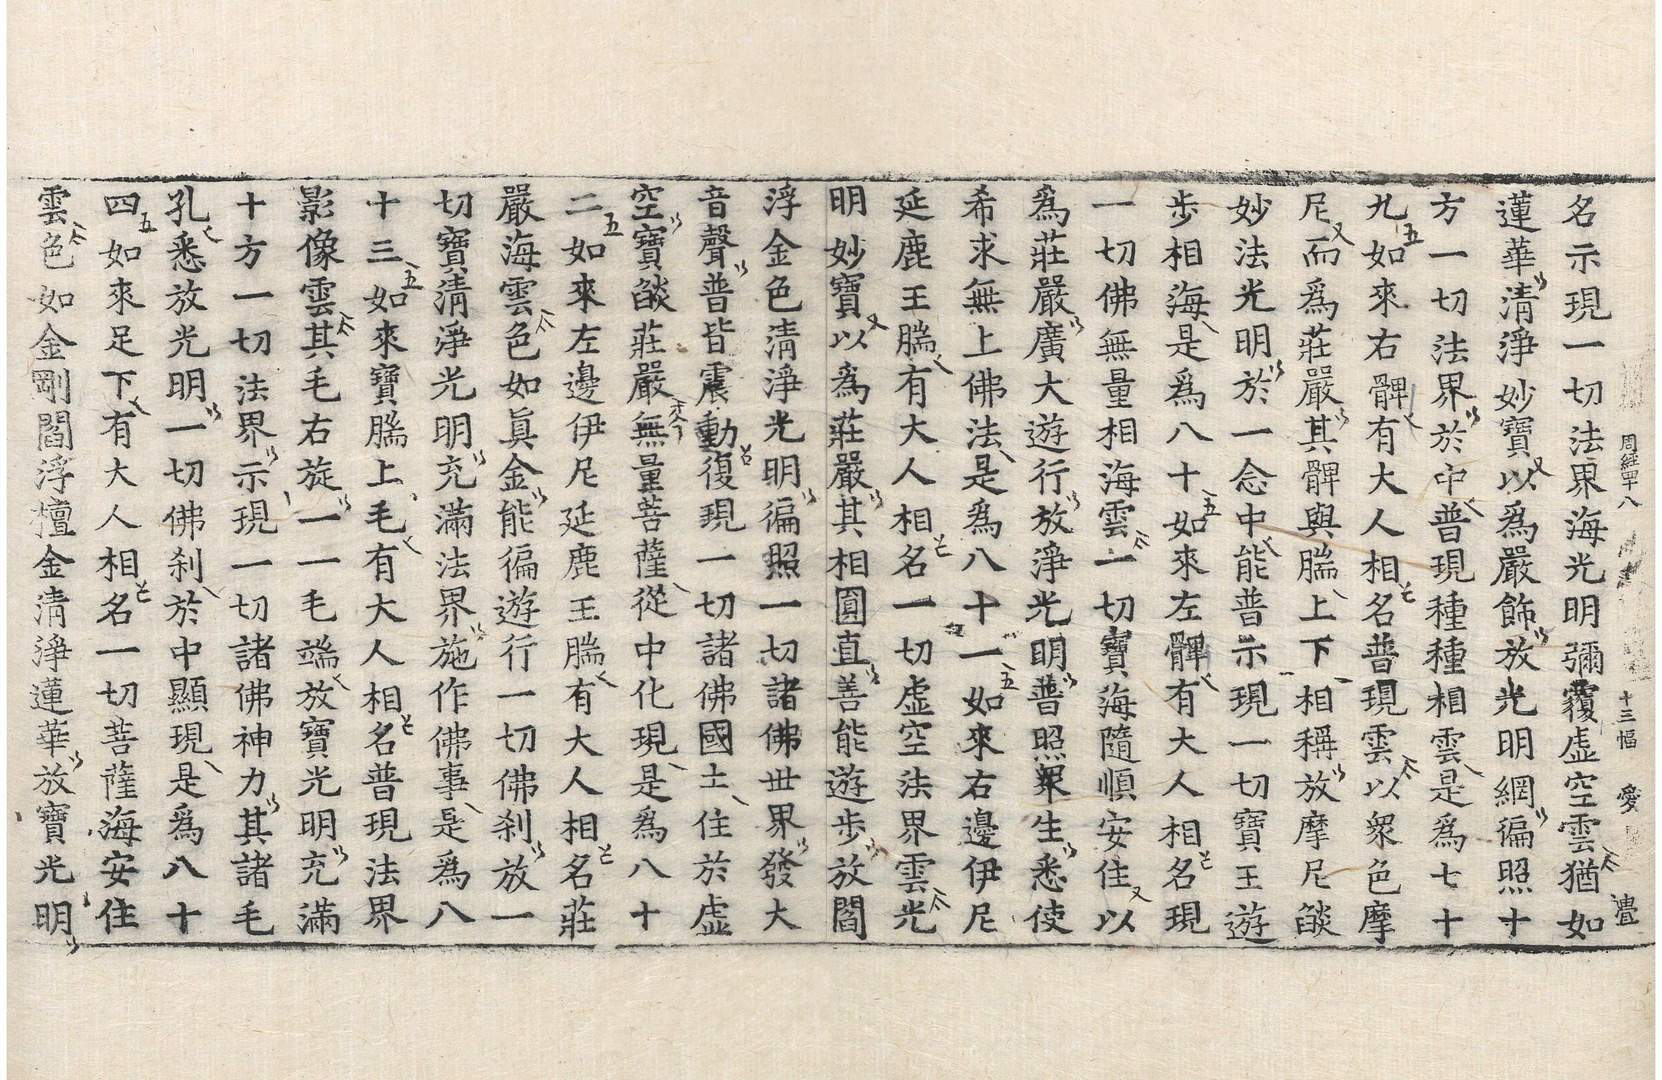 周經四十八　十三幅　愛
名示現一切法界海光明彌覆虛空雲猶如
蓮華淸淨妙寶以爲嚴飾放光明網徧照十
方一切法界於中普現種種相雲是爲七十
九如來右髀有大人相名普現雲以衆色摩
尼而爲莊嚴其髀與腨上下相稱放摩尼燄
妙法光明於一念中能普示現一切寶王遊
步相海是爲八十如來左髀有大人相名現
一切佛無量相海雲一切寶海隨順安住以
爲莊嚴廣大遊行放淨光明普照衆生悉使
希求無上佛法是爲八十一如來右邊伊尼
延鹿王腨有大人相名一切虛空法界雲光
明妙寶以爲莊嚴其相圓直善能遊步放閻
浮金色淸淨光明徧照一切諸佛世界發大
音聲普皆震動復現一切諸佛國土住於虛
空寶燄莊嚴無量菩薩從中化現是爲八十
二如來左邊伊尼延鹿王腨有大人相名莊
嚴海雲色如眞金能徧遊行一切佛刹放一
切寶淸淨光明充滿法界施作佛事是爲八
十三如來寶腨上毛有大人相名普現法界
影像雲其毛右旋一一毛端放寶光明充滿
十方一切法界示現一切諸佛神力其諸毛
孔悉放光明一切佛刹於中顯現是爲八十
四如來足下有大人相名一切菩薩海安住
雲色如金剛閻浮檀金淸淨蓮華放寶光明